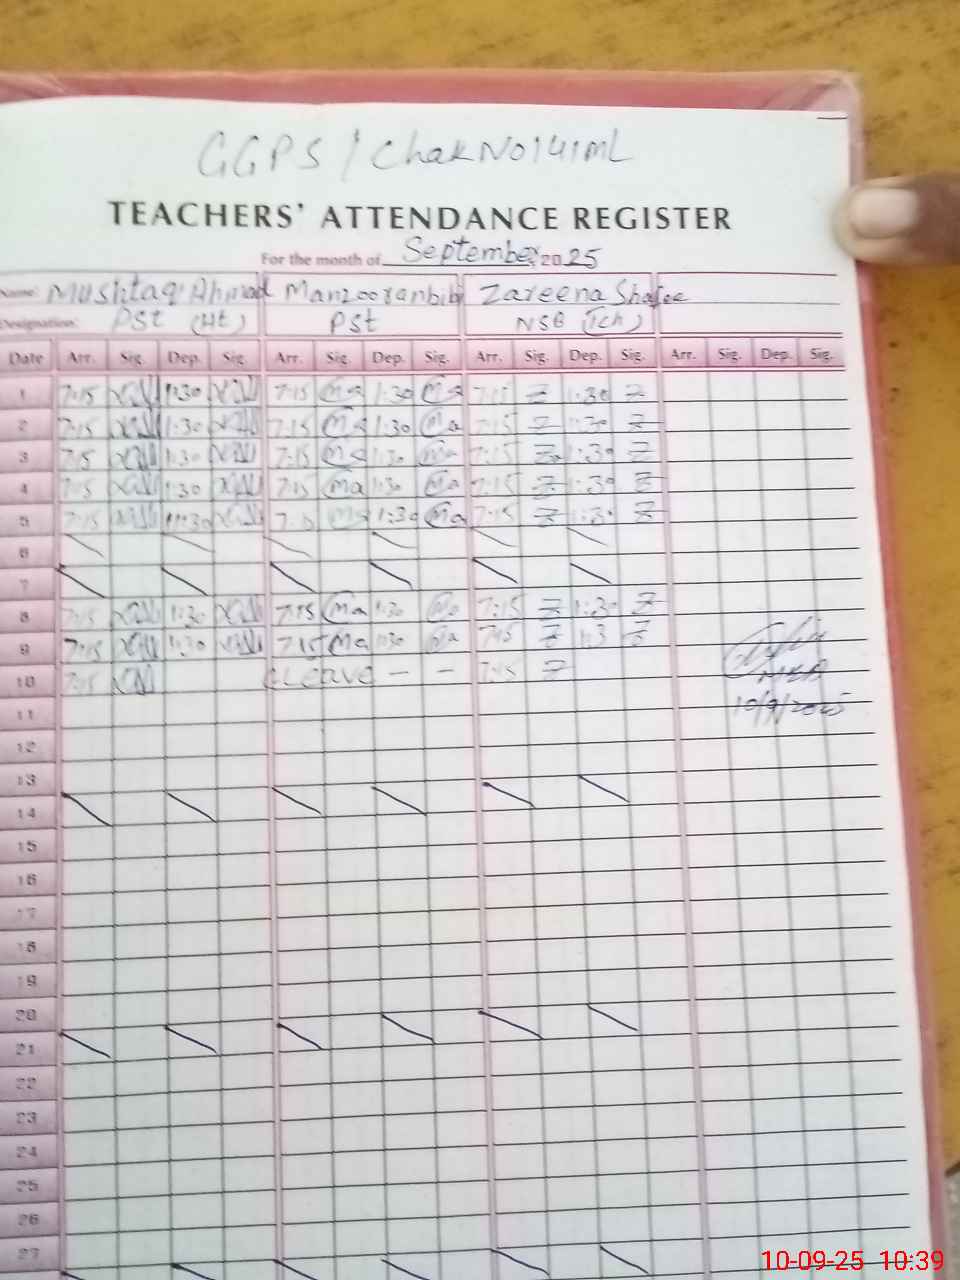 GGPS / Chak No 141ML
TEACHERS' ATTENDANCE REGISTER
For the month of September 2025
Name: Mushtaq Ahmad Manzooranbibi Zareena Shafee
Designation: PSt (Ht) PSt NSB (Tch)
Date Arr. Sig. Dep. Sig. Arr. Sig. Dep. Sig. Arr. Sig. Dep. Sig. Arr. Sig. Dep. Sig.
1 7:15 1:30 7:15 Ma 1:30 Ma 7:15 Z 1:30 Z
2 7:15 1:30 7:15 Ma 1:30 Ma 7:15 Z 1:30 Z
3 7:15 1:30 7:15 Ma 1:30 Ma 7:15 Z 1:30 Z
4 7:15 1:30 7:15 Ma 1:30 Ma 7:15 Z 1:30 Z
5 7:15 1:30 7:15 Ma 1:30 Ma 7:15 Z 1:30 Z
6
7
8 7:15 1:30 7:15 Ma 1:30 Ma 7:15 Z 1:30 Z
9 7:15 1:30 7:15 Ma 1:30 Ma 7:15 Z 1:3 Z
10 7:15 cleave - - 7:15 Z
11 10/9/2025
12
13
14
15
16
17
18
19
20
21
22
23
24
25
26
27
10-09-25 10:39